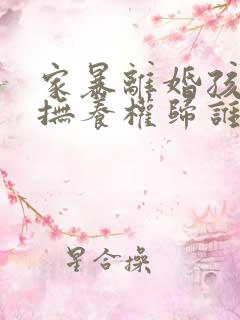 家暴離婚孩
撫養權歸誰
星合操